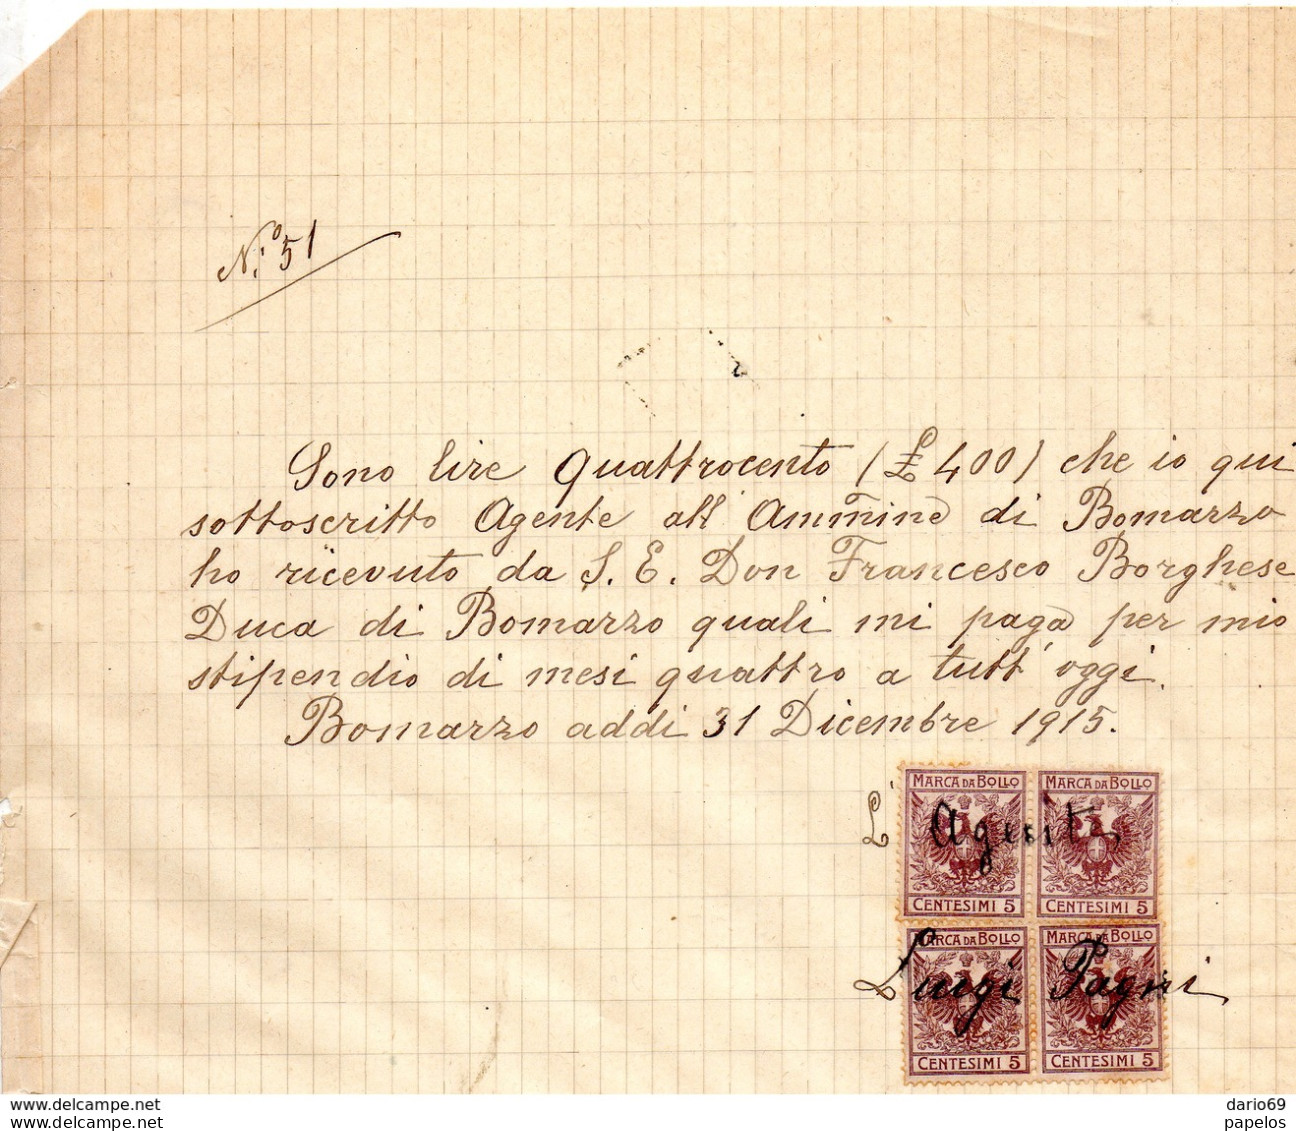 N.º 51
Sono lire Quattrocento (£ 400) che io qui
sottoscritto Agente all' Ammine di Bomarzo
ho ricevuto da S. E. Don Francesco Borghese
Duca di Bomarzo quali mi paga per mio
stipendio di mesi quattro a tutt' oggi.
Bomarzo addi 31 Dicembre 1915.
MARCA DA BOLLO MARCA DA BOLLO
L' Agente
CENTESIMI 5 CENTESIMI 5
MARCA DA BOLLO MARCA DA BOLLO
Luigi
CENTESIMI 5 CENTESIMI 5
www.delcampe.net dario69
www.delcampe.net papelos